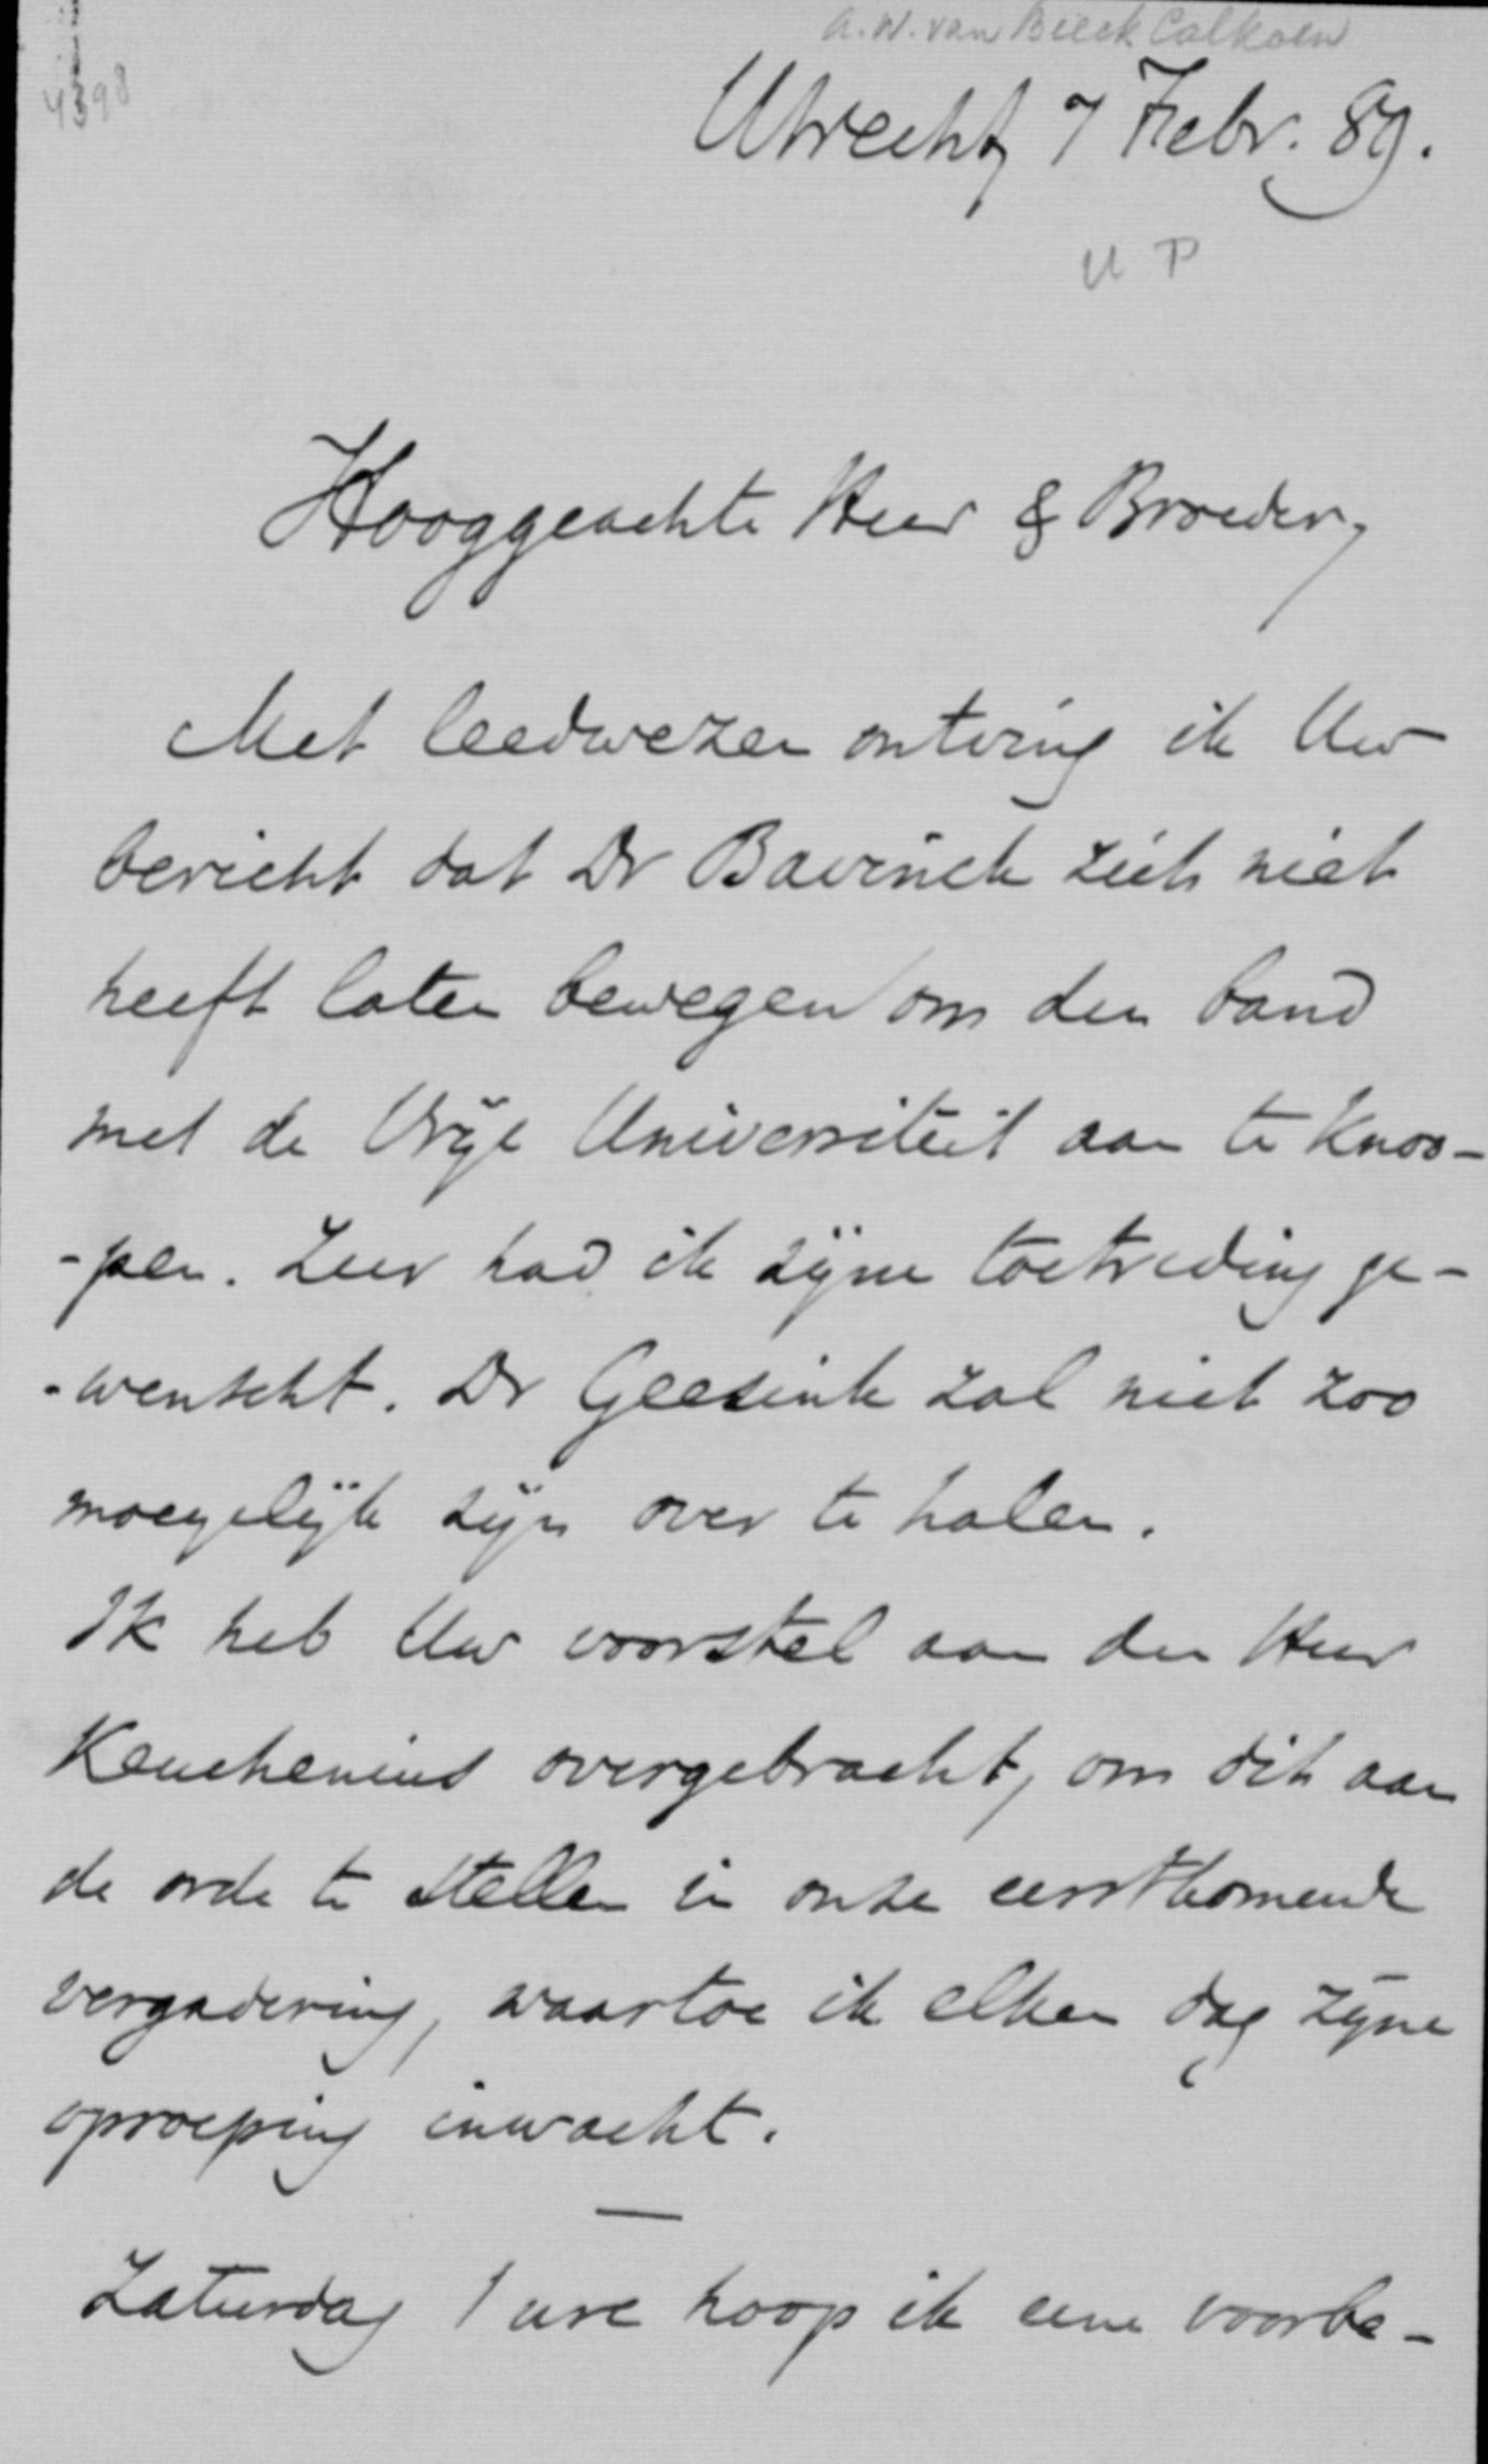 A.W. van Beeck Calkoen
4398
Utrecht, 7 Febr. 89.
U P
Hooggeachte Heer & Broeder,
Met leedwezen ontving ik Uw
bericht dat Dr Bavinck zich niet
heeft laten bewegen om den band
met de Vrije Universiteit aan te knoo-
-pen. Zeer had ik zijne toetreding ge-
-wenscht. Dr Geesink zal niet zoo
moeyelijk zijn over te halen.
Ik heb Uw voorstel aan den Heer
Keuchenius overgebracht, om dit aan
de orde te stellen in onze eerstkomende
vergadering, waartoe ik elken dag zijne
oproeping inwacht.
—
Zaturdag 1 ure hoop ik eene voorbe-